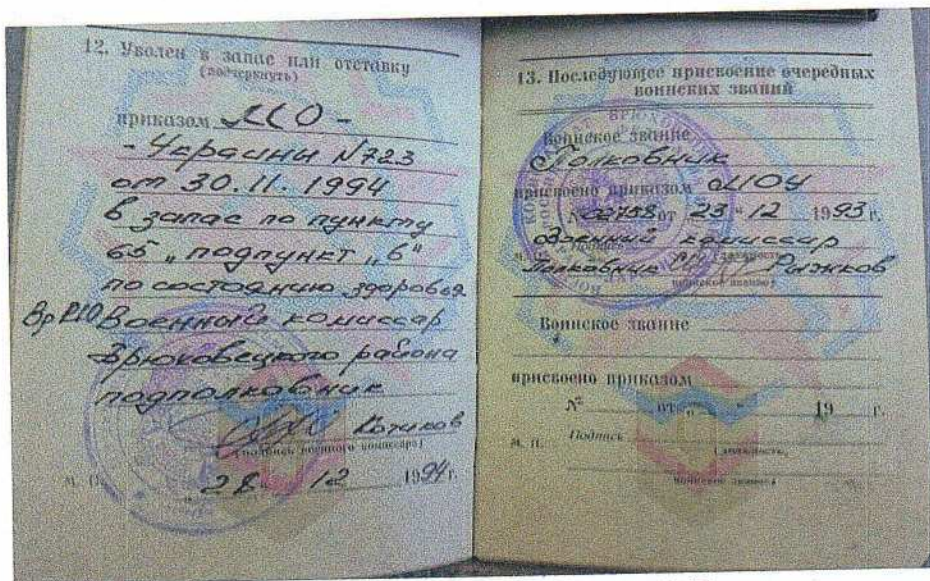 12. Уволен в запас или отставку
(подчеркнуть)
приказом МО -
- Украины N723
от 30.11.1994
в запас по пункту
65 „подпункт „б"
по состоянию здоровья
Вр ИО Военный комиссар
Брюховецкого района
подполковник
Котиков
(подпись военного комиссара)
М. П. „28" 12 1994 г.
13. Последующее присвоение очередных
воинских званий
Воинское звание
Полковник
присвоено приказом МОУ
№ 02758 от 23 " 12 1993 г.
Военный комиссар
М. П. (должность,
Полковник Рыжков
воинское звание)
Воинское звание
присвоено приказом
№ от „ " 19 г.
М. П. Подпись
(должность,
воинское звание)